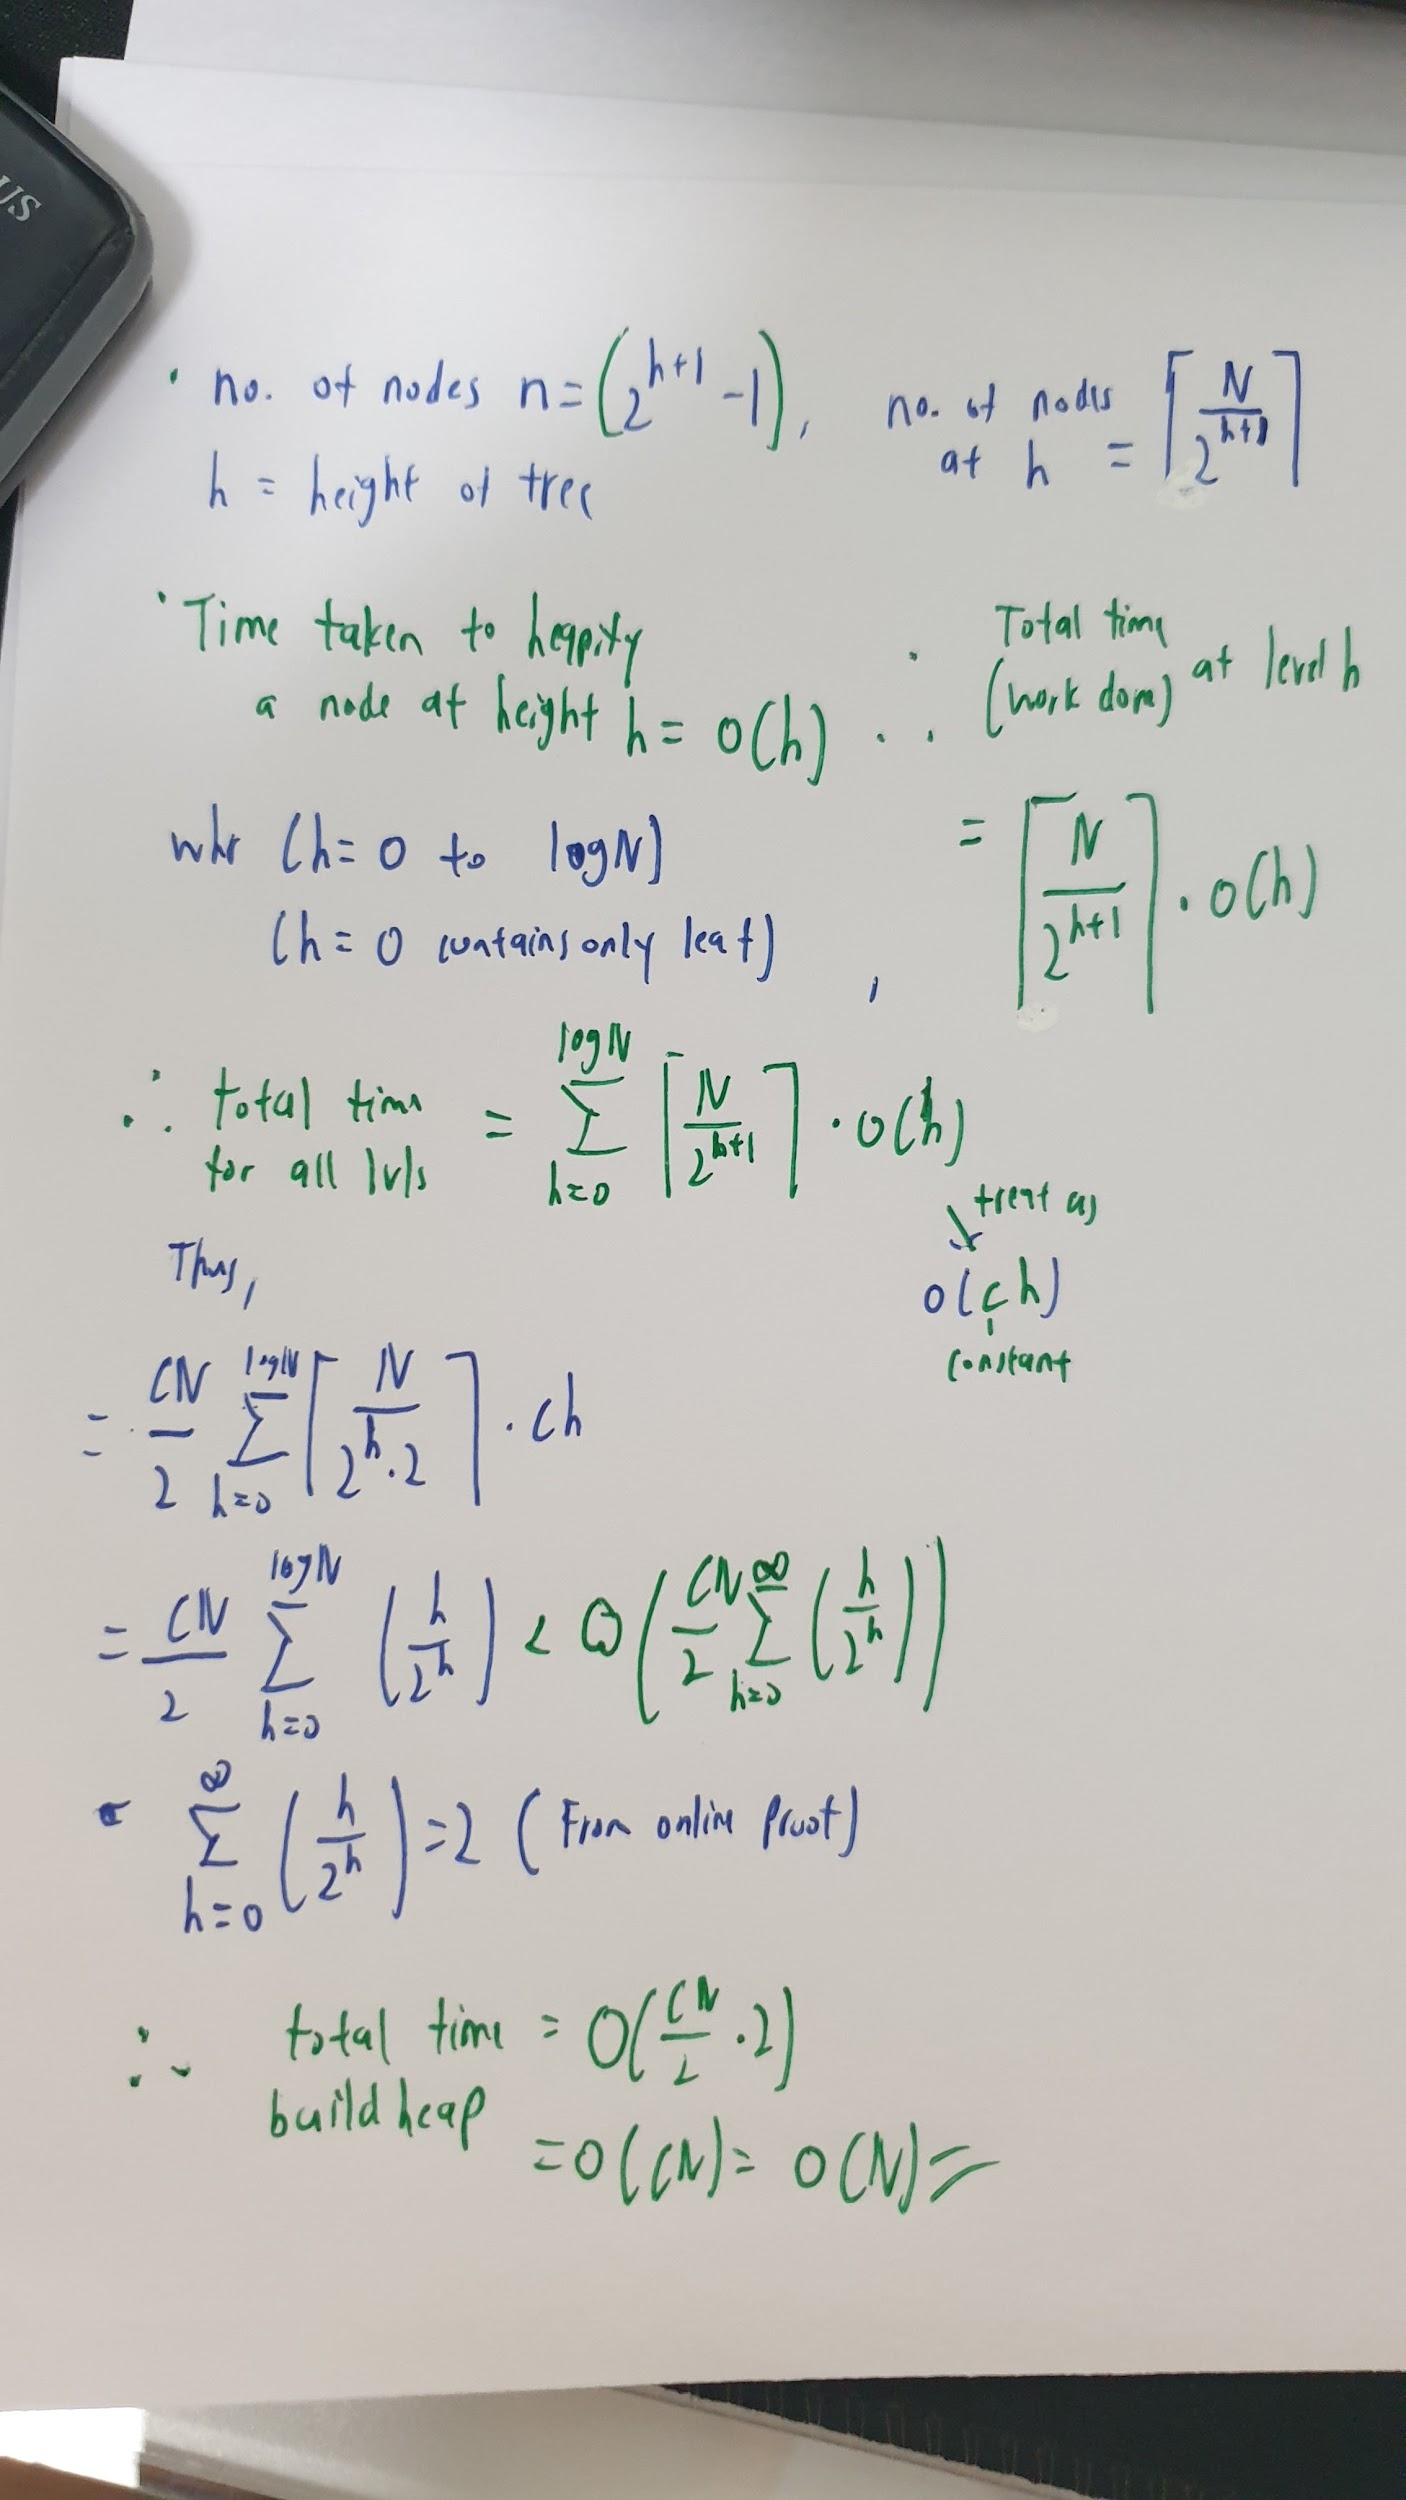 US
· no. of nodes n = (2^{h+1} - 1), no. of nodes at h = ⌈N / 2^{h+1}⌉
h = height of tree
· Time taken to heapify
a node at height h = O(h)
∴ Total time (work done) at level h
= ⌈N / 2^{h+1}⌉ · O(h)
whr (h = 0 to log N)
(h = 0 contains only leaf) ,
∴ total time for all lvls = ∑_{h=0}^{log N} ⌈N / 2^{h+1}⌉ · O(h)
↘ treat as
O(ch)
constant
Thus,
= CN/2 ∑_{h=0}^{log N} ⌈N / 2^h · 2⌉ · ch
= CN/2 ∑_{h=0}^{log N} (h / 2^h) < O(CN/2 ∑_{h=0}^{∞} (h / 2^h))
· ∑_{h=0}^{∞} (h / 2^h) = 2 (From online proof)
∴ total time build heap = O(CN/2 · 2)
= O(CN) = O(N)